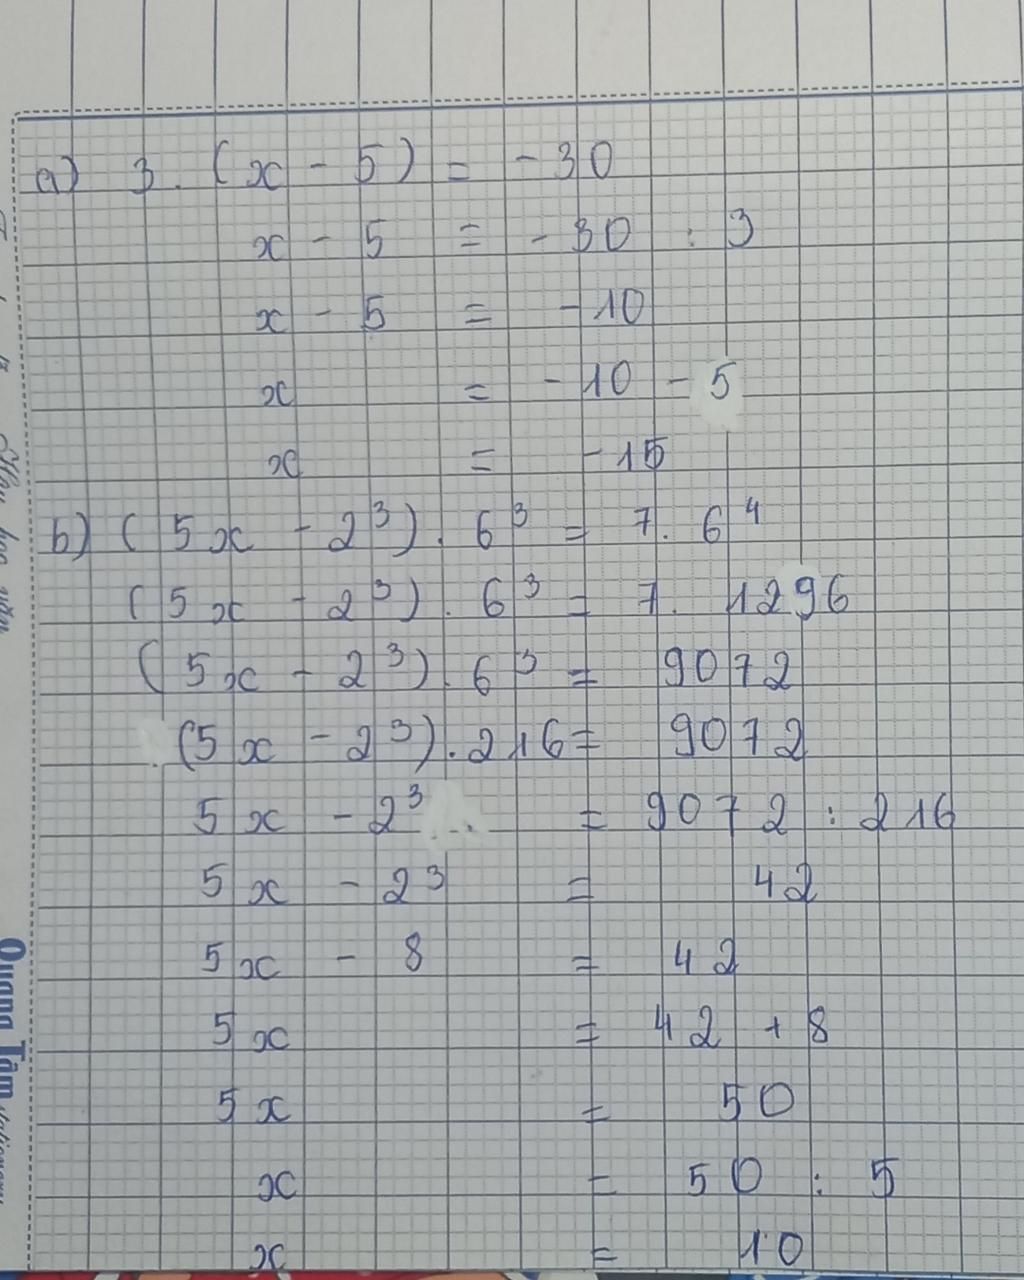 a) 3. (x - 5) = - 30
x - 5 = - 30 : 3
x - 5 = - 10
x = - 10 - 5
x = - 15
b) (5x - 2³) . 6³ = 7. 6⁴
(5x - 2³) . 6³ = 7. 1296
(5x - 2³) . 6³ = 9072
(5x - 2³) . 216 = 9072
5x - 2³ = 9072 : 216
5x - 2³ = 42
5x - 8 = 42
5x = 42 + 8
5x = 50
x = 50 : 5
x = 10
Quang Tâm